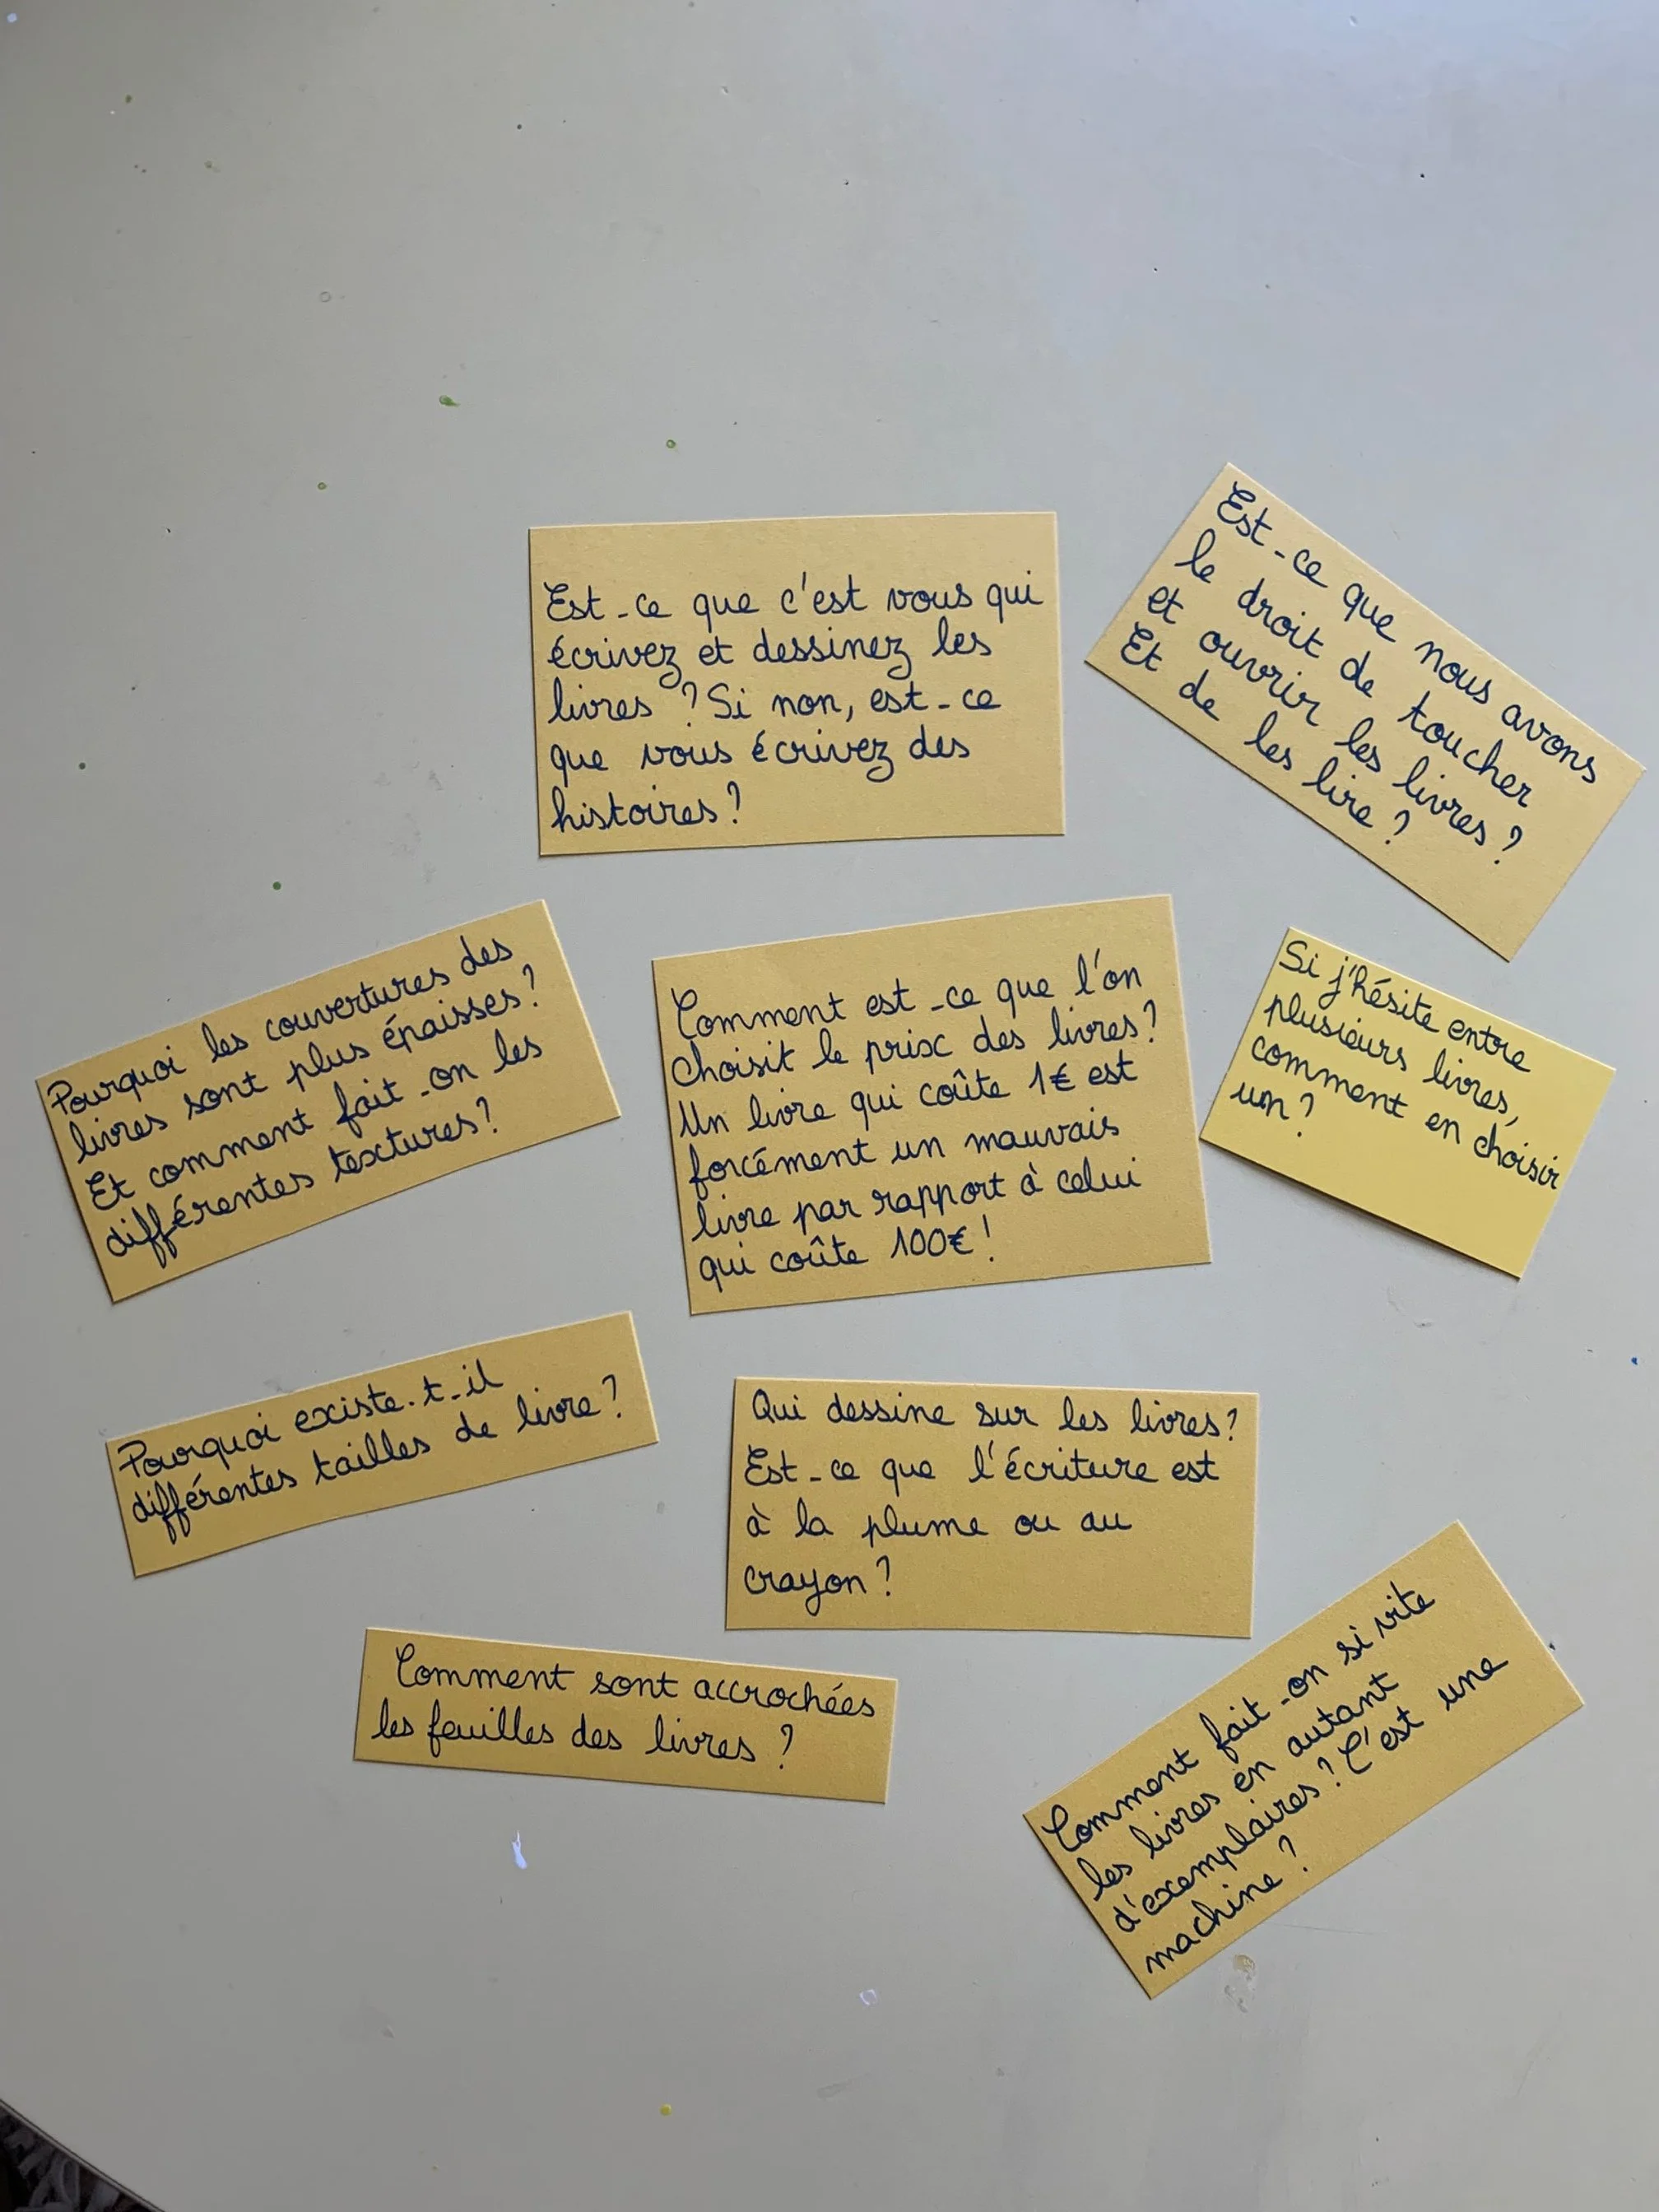 Est-ce que c'est vous qui
écrivez et dessinez les
livres ? Si non, est-ce
que vous écrivez des
histoires ?
Est-ce que nous avons
le droit de toucher
et ouvrir les livres ?
Et de les lire ?
Pourquoi les couvertures des
livres sont plus épaisses ?
Et comment fait-on les
différentes textures ?
Comment est-ce que l'on
choisit le prix des livres ?
Un livre qui coûte 1€ est
forcément un mauvais
livre par rapport à celui
qui coûte 100€ !
Si j'hésite entre
plusieurs livres,
comment en choisir
un ?
Pourquoi existe-t-il
différentes tailles de livre ?
Qui dessine sur les livres ?
Est-ce que l'écriture est
à la plume ou au
crayon ?
Comment sont accrochées
les feuilles des livres ?
Comment fait-on si vite
les livres en autant
d'exemplaires ? C'est une
machine ?